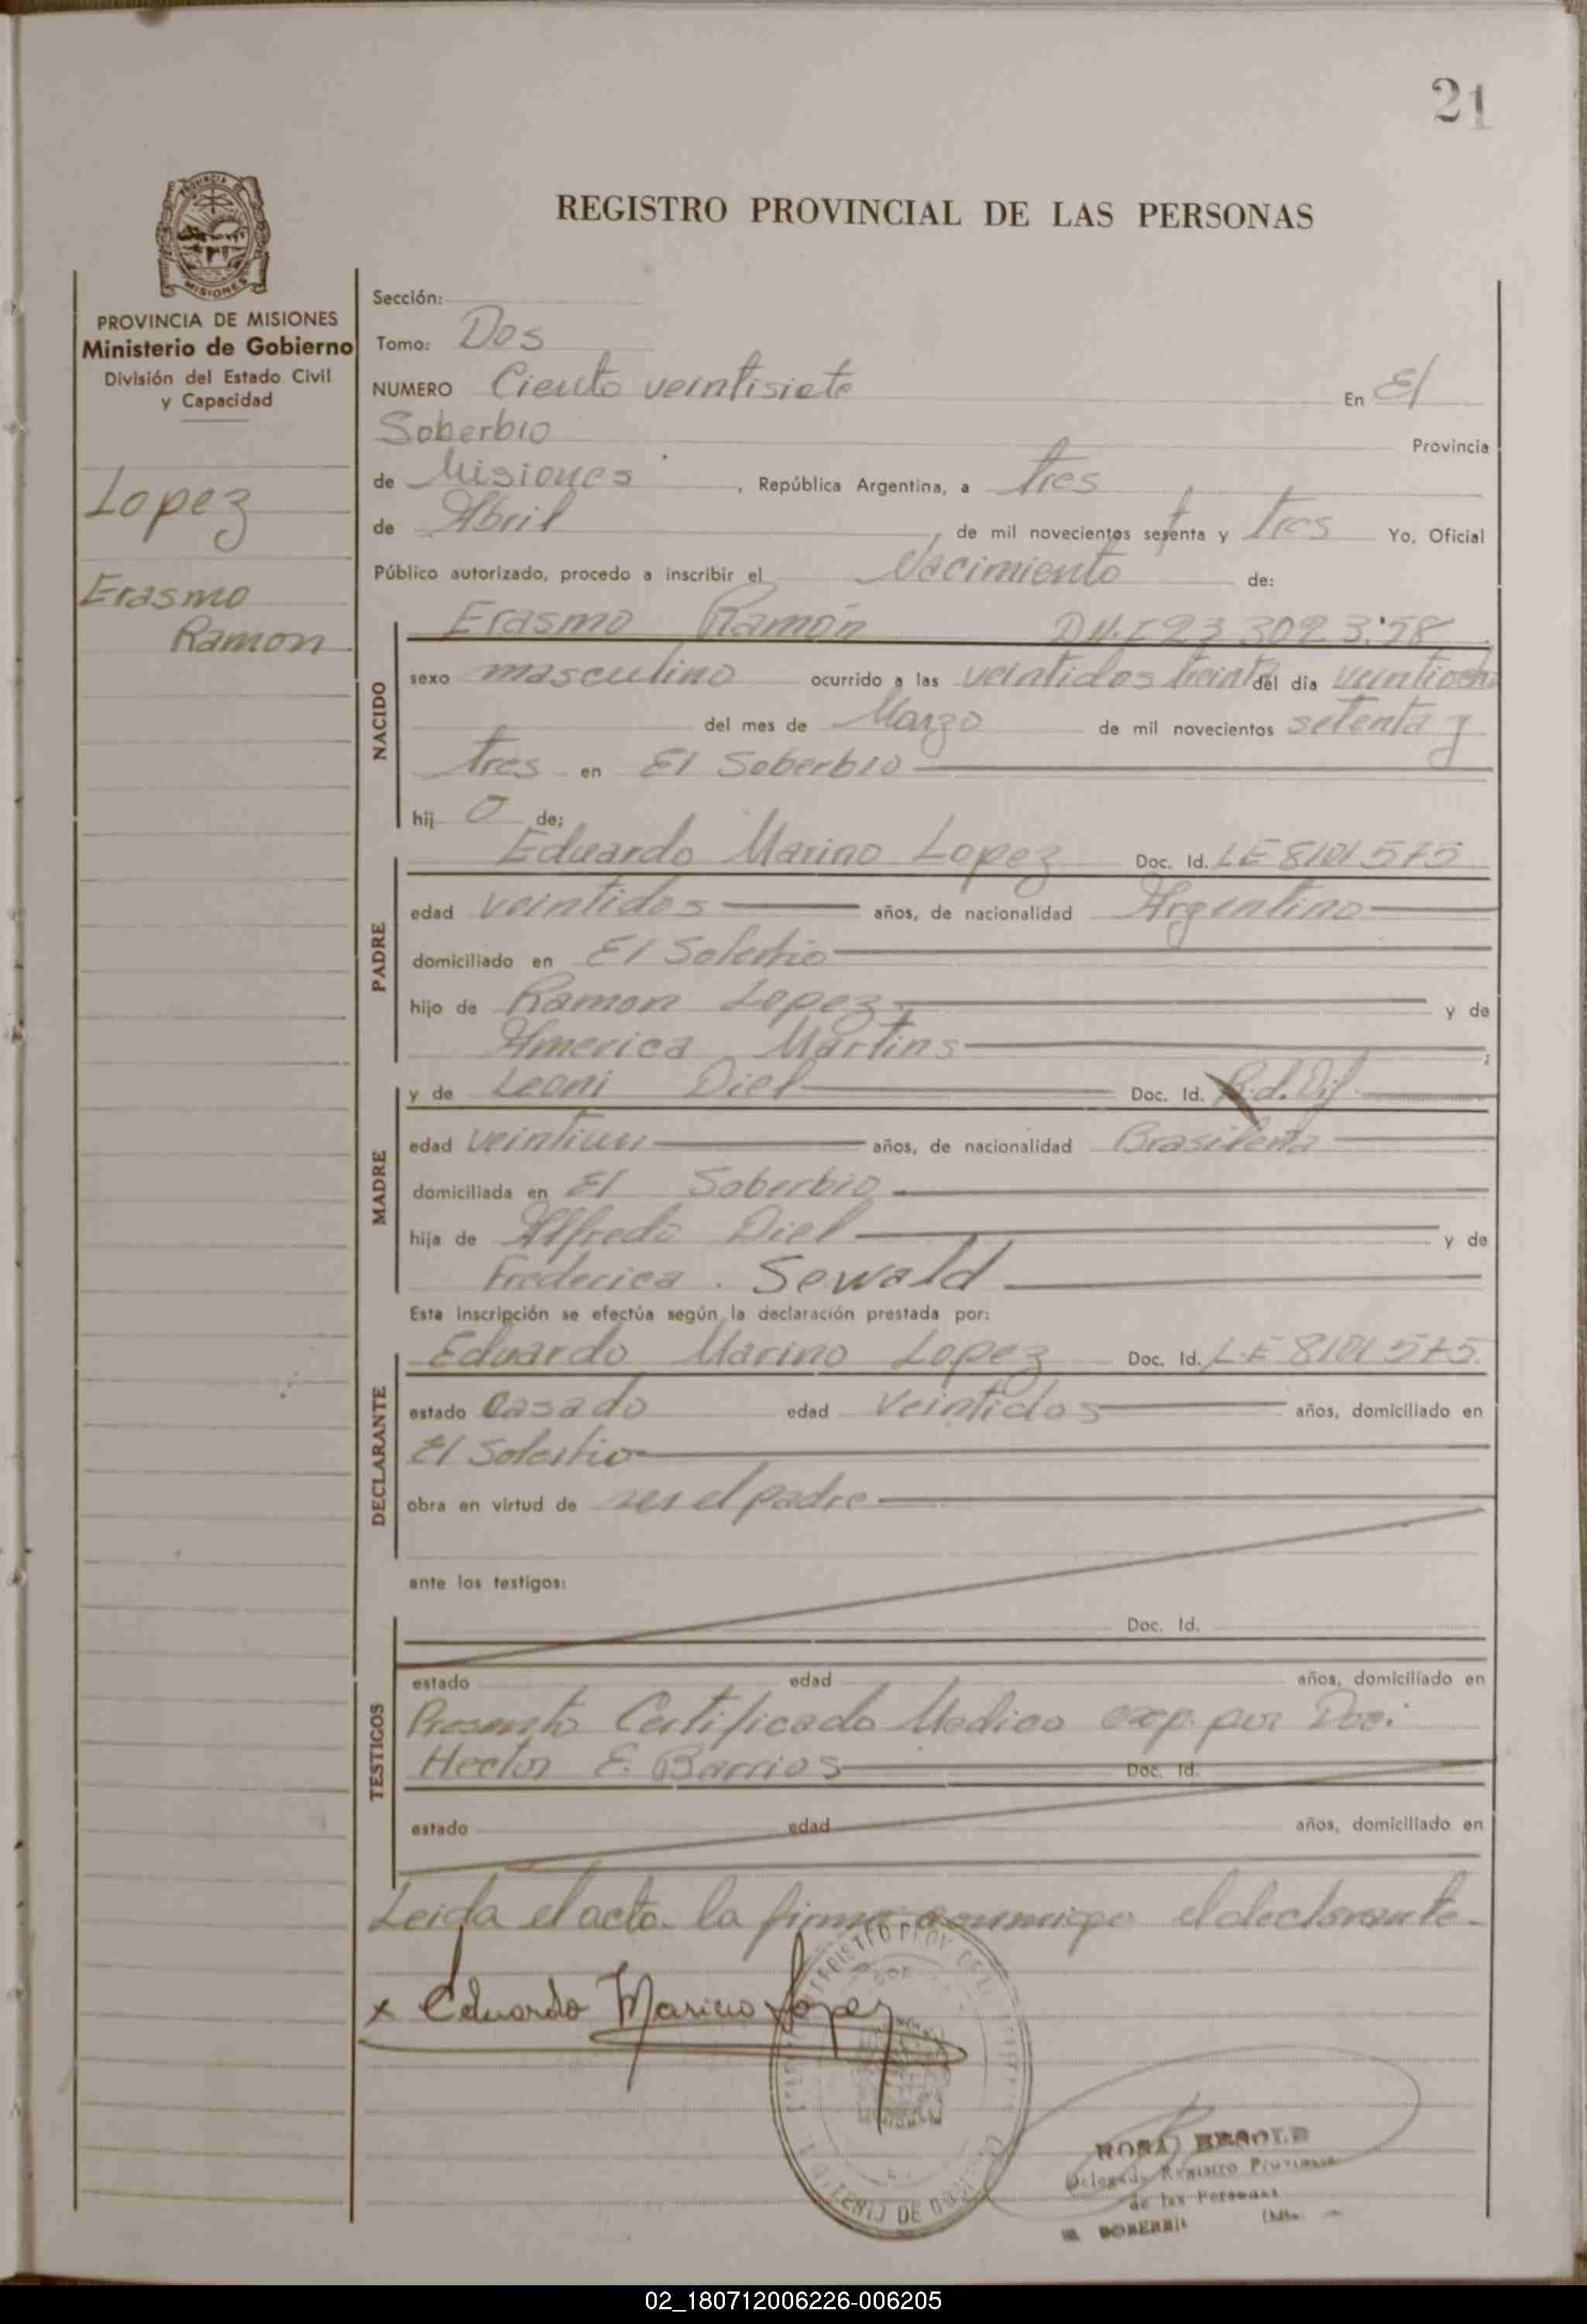 21
PROVINCIA DE MISIONES
REGISTRO PROVINCIAL DE LAS PERSONAS
PROVINCIA DE MISIONES
Ministerio de Gobierno
División del Estado Civil
y Capacidad
Lopez
Erasmo
Ramon
Sección:
Tomo: Dos
NUMERO Ciento veintisiete En El
Soberbio Provincia
de Misiones, República Argentina, a tres
de Abril, de mil novecientos setenta y tres Yo, Oficial
Público autorizado, procedo a inscribir el Nacimiento de:
NACIDO
Erasmo Ramón
sexo masculino ocurrido a las veintidos treinta del día veintiocho
del mes de Marzo de mil novecientos setenta y
tres en El Soberbio
hij o de;
PADRE
Eduardo Marino Lopez Doc. Id. LE 8101575
edad veintidos años, de nacionalidad Argentino
domiciliado en El Soberbio
hijo de Ramon Lopez y de
America Martins;
MADRE
y de Leoni Diel Doc. Id.
edad veintiun años, de nacionalidad Brasileña
domiciliada en El Soberbio
hija de Alfredo Diel y de
Frederica. Sewald
Esta inscripción se efectúa según la declaración prestada por:
DECLARANTE
Eduardo Marino Lopez Doc. Id. L.E 8101575.
estado casado edad veintidos años, domiciliado en
El Soberbio
obra en virtud de ser el padre
ante los testigos:
TESTIGOS
Doc. Id.
estado edad años, domiciliado en
Presento Certificado Medico exp. por Doc.
Hector E. Barrios Doc. Id.
estado edad años, domiciliado en
Leida el acta la firma conmigo el declarante.
x Eduardo Marino Lopez
Delegado Registro Provincial
de las Personas
02_180712006226-006205